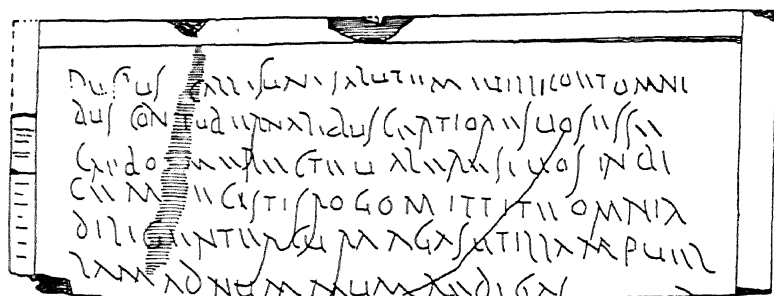 RUFUS CALLISUNI SALUTEM EPILLICO ET OMNI
BUS CONTUBERNALIBUS CERTIORES UOS ESSE
CREDO ME RECTE UALERE SI UOS INDI
CEM FECISTIS ROGO MITTITE OMNIA
DILIGENTER CURA AGAS UT ILLAM PUEL
LAM AD NUMMUM REDIGAS